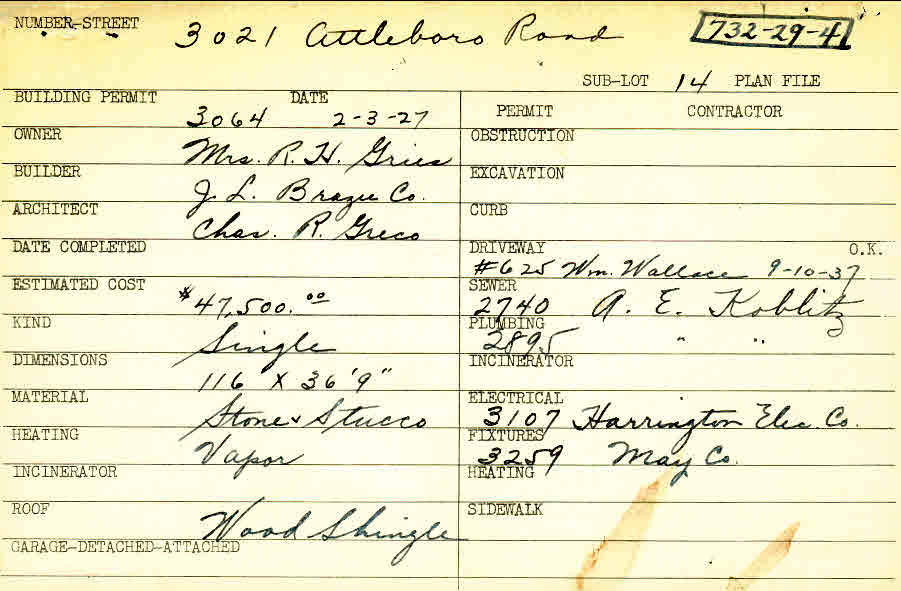 NUMBER-STREET 3021 Attleboro Road 732-29-4
SUB-LOT 14 PLAN FILE
BUILDING PERMIT DATE
3064 2-3-27
PERMIT CONTRACTOR
OWNER Mrs. R. H. Gries
OBSTRUCTION
BUILDER J. L. Brazie Co.
EXCAVATION
ARCHITECT Chas. R. Greco
CURB
DATE COMPLETED
DRIVEWAY O.K.
#625 Wm. Wallace 9-10-37
ESTIMATED COST $47,500.00
SEWER 2740 A. E. Koblitz
KIND Single
PLUMBING 2895 " "
DIMENSIONS 116 X 36'9"
INCINERATOR
MATERIAL Stone & Stucco
ELECTRICAL 3107 Harrington Elec. Co.
HEATING Vapor
FIXTURES 3259 May Co.
INCINERATOR
HEATING
ROOF Wood Shingle
SIDEWALK
GARAGE-DETACHED-ATTACHED